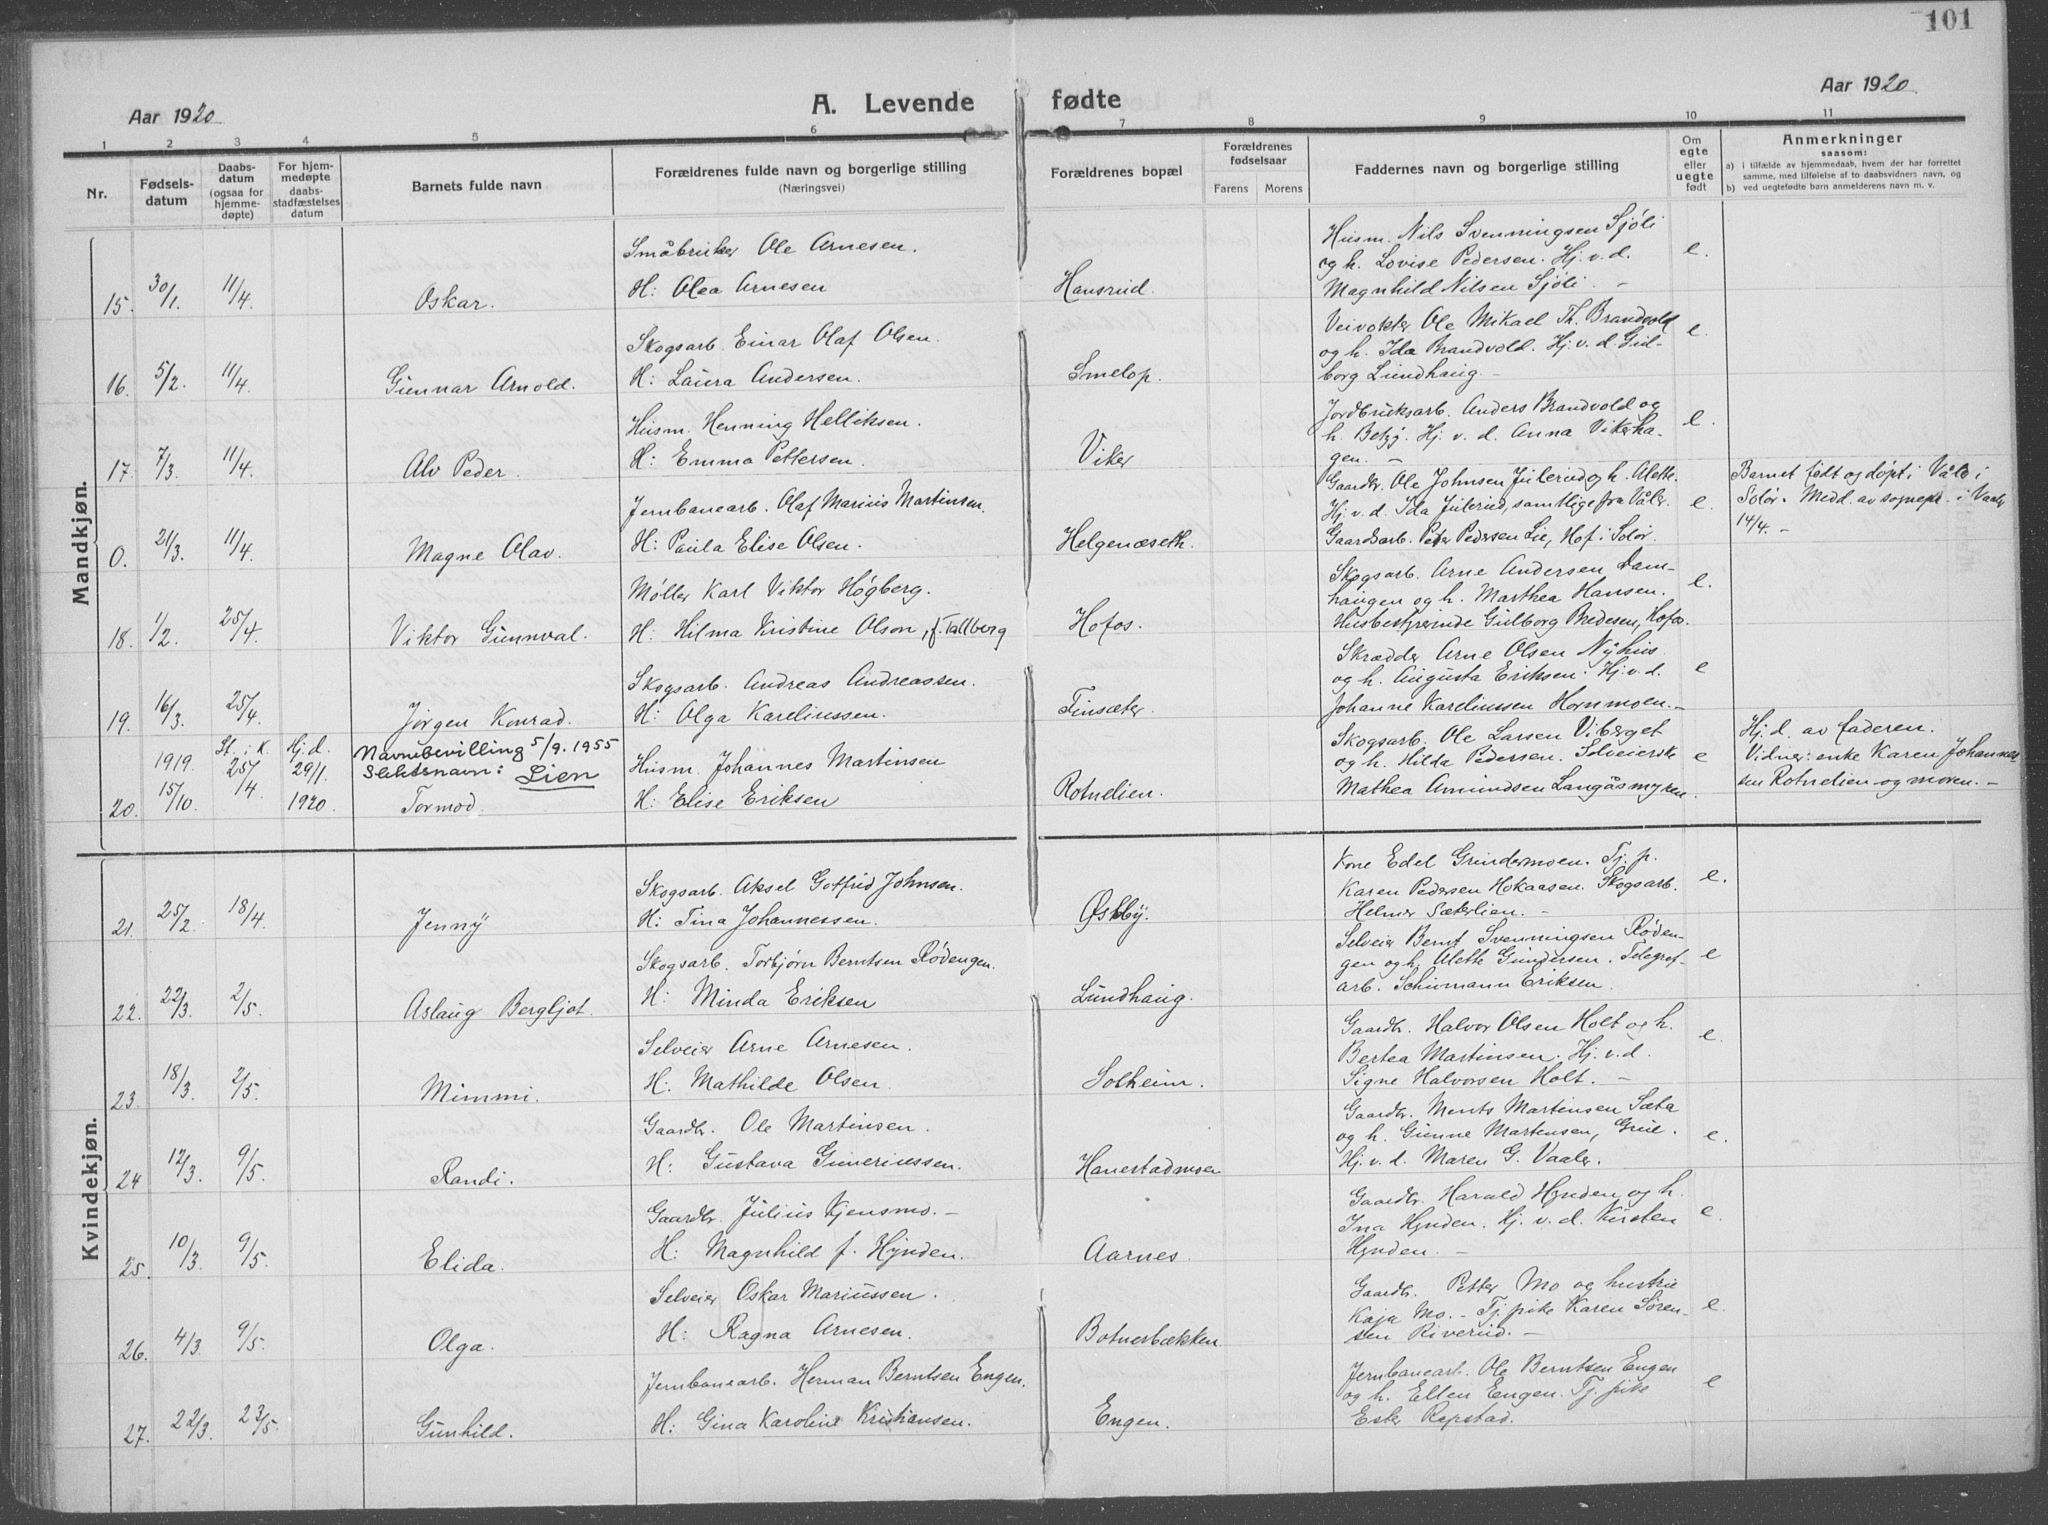 101
Aar 1920
A. Levende fødte
Aar 1920
1 2 3 4 5 6 7 8 9 10 11
Nr.
Fødsels-
datum
Daabs-
datum
(ogsaa for
hjemme-
døpte)
For hjem-
medøpte
daabs-
stadfæstelses
datum
Barnets fulde navn
Forældrenes fulde navn og borgerlige stilling
(Næringsvei)
Forældrenes bopæl
Forældrenes
fødselsaar
Farens Morens
Faddernes navn og borgerlige stilling
Om
egte
eller
uegte
født
Anmerkninger
saasom:
a) i tilfælde av hjemmedaab, hvem der har forrettet
samme, med tilføielse af to daabsvidners navn, og
b) ved uegtefødte barn anmelderens navn m. v.
Mandkjøn.
15. 30/1. 11/4. Oskar.
Småbruker Ole Arnesen.
H: Olea Arnesen
Hansrud.
Husm. Nils Svenningsen Sjøli
og h. Lovise Pedersen. Hj. v. d.
Magnhild Nilsen Sjøli. –
e.
16. 5/2. 11/4. Gunnar Arnold.
Skogsarb. Einar Olaf Olsen.
H: Laura Andersen.
Smelop.
Veivokter Ole Mikael Th. Brandvold
og h. Ida Brandvold. Hj. v. d. Gul-
borg Lundhaug. –
e.
17. 7/3. 11/4. Alv Peder.
Husm. Henning Helliksen.
H: Emma Pettersen.
Viker
Jordbruksarb. Anders Brandvold og
h. Betzy. Hj. v. d. Anna Vikerha-
gen. –
e.
0. 21/3. 11/4. Magne Olav.
Jernbanearb. Olaf Marius Martinsen.
H: Paula Elise Olsen.
Helgenæseth.
Gaardbr. Ole Johnsen Julerud og h. Alette.
Hj. v. d. Ida Julerud, samtlige fra Våler.
Gaardsarb. Peder Pedersen Lie, Hof i Solør.
e.
Barnet født og døpt i Våler i
Solør. Medd. av sognepr. i Vaaler
14/4. –
18. 1/2. 25/4. Viktor Gunnval.
Møller Karl Viktor Högberg.
H: Hilma Kristine Olson, f. Tallberg
Hofos.
Skogsarb. Arne Andersen Dam-
haugen og h. Marthea Hansen.
Husbestyrerinde Gulborg Bredesen, Hofos.
e.
19. 16/3. 25/4. Jørgen Konrad.
Skogsarb. Andreas Andreassen.
H: Olga Karelinssen.
Finsæter
Skrædder Arne Olsen Nyhus
og h. Augusta Eriksen. Hj. v. d.
Johanne Karelinssen Hornmoen. –
e
20. 1919. 15/10. St. i K. 25/4. Hj. d. 29/1. 1920.
Navnebevilling 5/9. 1955
Slektsnavn: Lien
Tormod.
Husm. Johannes Martinsen
H: Elise Eriksen
Rotnelien.
Skogsarb. Ole Larsen Viberget
og h. Hilda Pedersen. Selveierske
Mathea Amundsen Langåsmyren.
e
Hj. d. av faderen.
Vidner: enke Karen Johannes-
sen Rotnelien og moren. –
Kvindekjøn.
21. 25/2. 18/4. Jenny
Skogsarb. Aksel Gotfrid Johnsen.
H: Tina Johannessen.
Østby.
Kone Edel Grindermoen. Tj. p.
Karen Pedersen Hokaasen. Skogsarb.
Helmer Sæterlien. –
e.
22. 22/3. 2/5. Aslaug Bergljot.
Skogsarb. Torbjørn Berntsen Rödengen.
H: Minda Eriksen
Lundhaug.
Selveier Bernt Svenningsen Röden-
gen og h. Alette Gundersen. Telegraf-
arb. Schumann Eriksen.
e
23. 18/3. 2/5. Mimmi.
Selveier Arne Arnesen.
H: Mathilde Olsen.
Solheim.
Gaardbr. Halvor Olsen Holt og h.
Bertea Martinsen. Hj. v. d.
Signe Halvorsen Holt. –
e.
24 12/3. 9/5. Randi.
Gaardbr. Ole Martinsen.
H: Gustava Guneriussen.
Hanestadmoen
Gaardbr. Ments Martinsen Sæta
og h. Gunne Martensen, Grue.
Hj. v. d. Maren G. Vaaler.
e.
25. 10/3. 9/5. Elida.
Gaardbr. Julius Kjensmo. –
H: Magnhild f. Hynden.
Aarnes.
Gaardbr. Harald Hynden og h.
Ina Hynden. Hj. v. d. Kirsten
Hynden. –
e.
26. 4/3. 9/5. Olga.
Selveier Oskar Mariussen.
H: Ragna Arnesen.
Botnerbækken
Gaardbr. Petter Mo og hustru
Kaja Mo. – Tj. pike Karen Søren-
sen Riverud. –
e.
27. 22/3. 23/5. Gunhild.
Jernbanearb. Herman Berntsen Engen.
H: Gina Karoline Kristiansen.
Engen.
Jernbanearb. Ole Berntsen Engen
og h. Ellen Engen. Tj. pike
Ester Repstad.
e